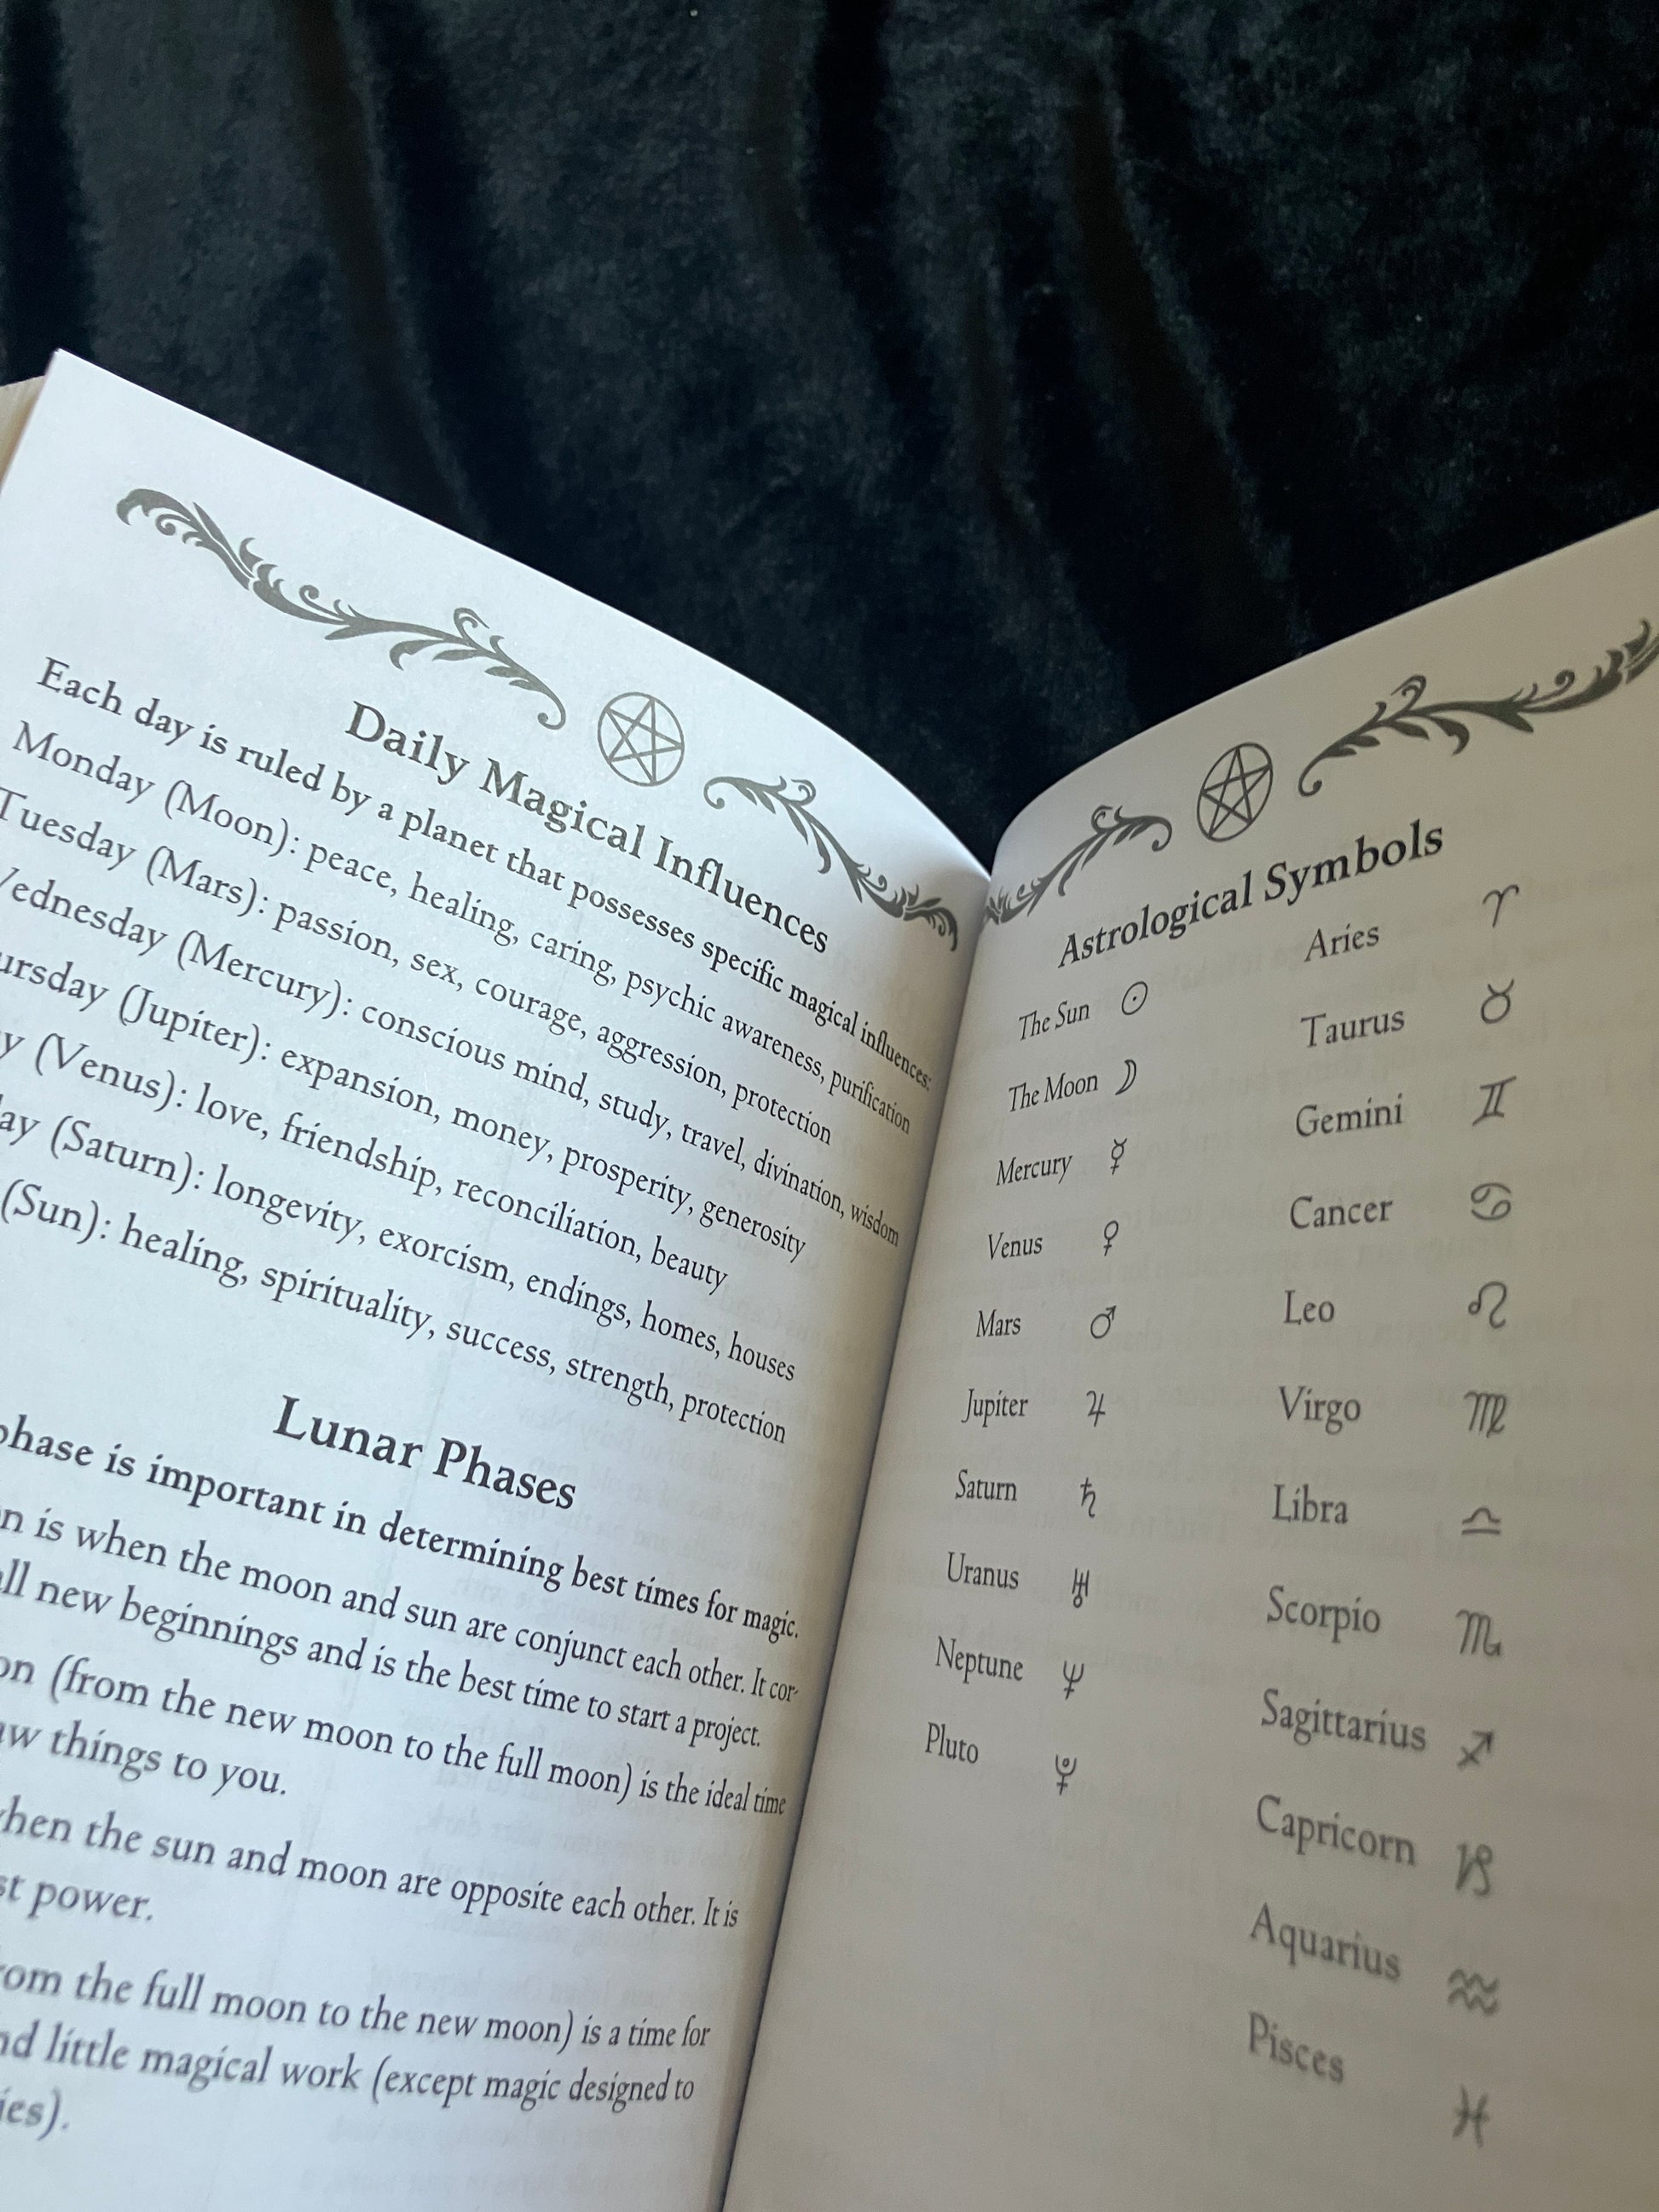 Daily Magical Influences
Each day is ruled by a planet that possesses specific magical influences:
Monday (Moon): peace, healing, caring, psychic awareness, purification
Tuesday (Mars): passion, sex, courage, aggression, protection
ednesday (Mercury): conscious mind, study, travel, divination, wisdom
ursday (Jupiter): expansion, money, prosperity, generosity
y (Venus): love, friendship, reconciliation, beauty
ay (Saturn): longevity, exorcism, endings, homes, houses
(Sun): healing, spirituality, success, strength, protection
Lunar Phases
phase is important in determining best times for magic.
n is when the moon and sun are conjunct each other. It cor-
ll new beginnings and is the best time to start a project.
on (from the new moon to the full moon) is the ideal time
aw things to you.
when the sun and moon are opposite each other. It is
st power.
rom the full moon to the new moon) is a time for
nd little magical work (except magic designed to
ies).
Astrological Symbols
The Sun ☉
The Moon ☽
Mercury ☿
Venus ♀
Mars ♂
Jupiter ♃
Saturn ♄
Uranus ♅
Neptune ♆
Pluto
Aries ♈
Taurus ♉
Gemini ♊
Cancer ♋
Leo ♌
Virgo ♍
Libra ♎
Scorpio ♏
Sagittarius ♐
Capricorn ♑
Aquarius ♒
Pisces ♓